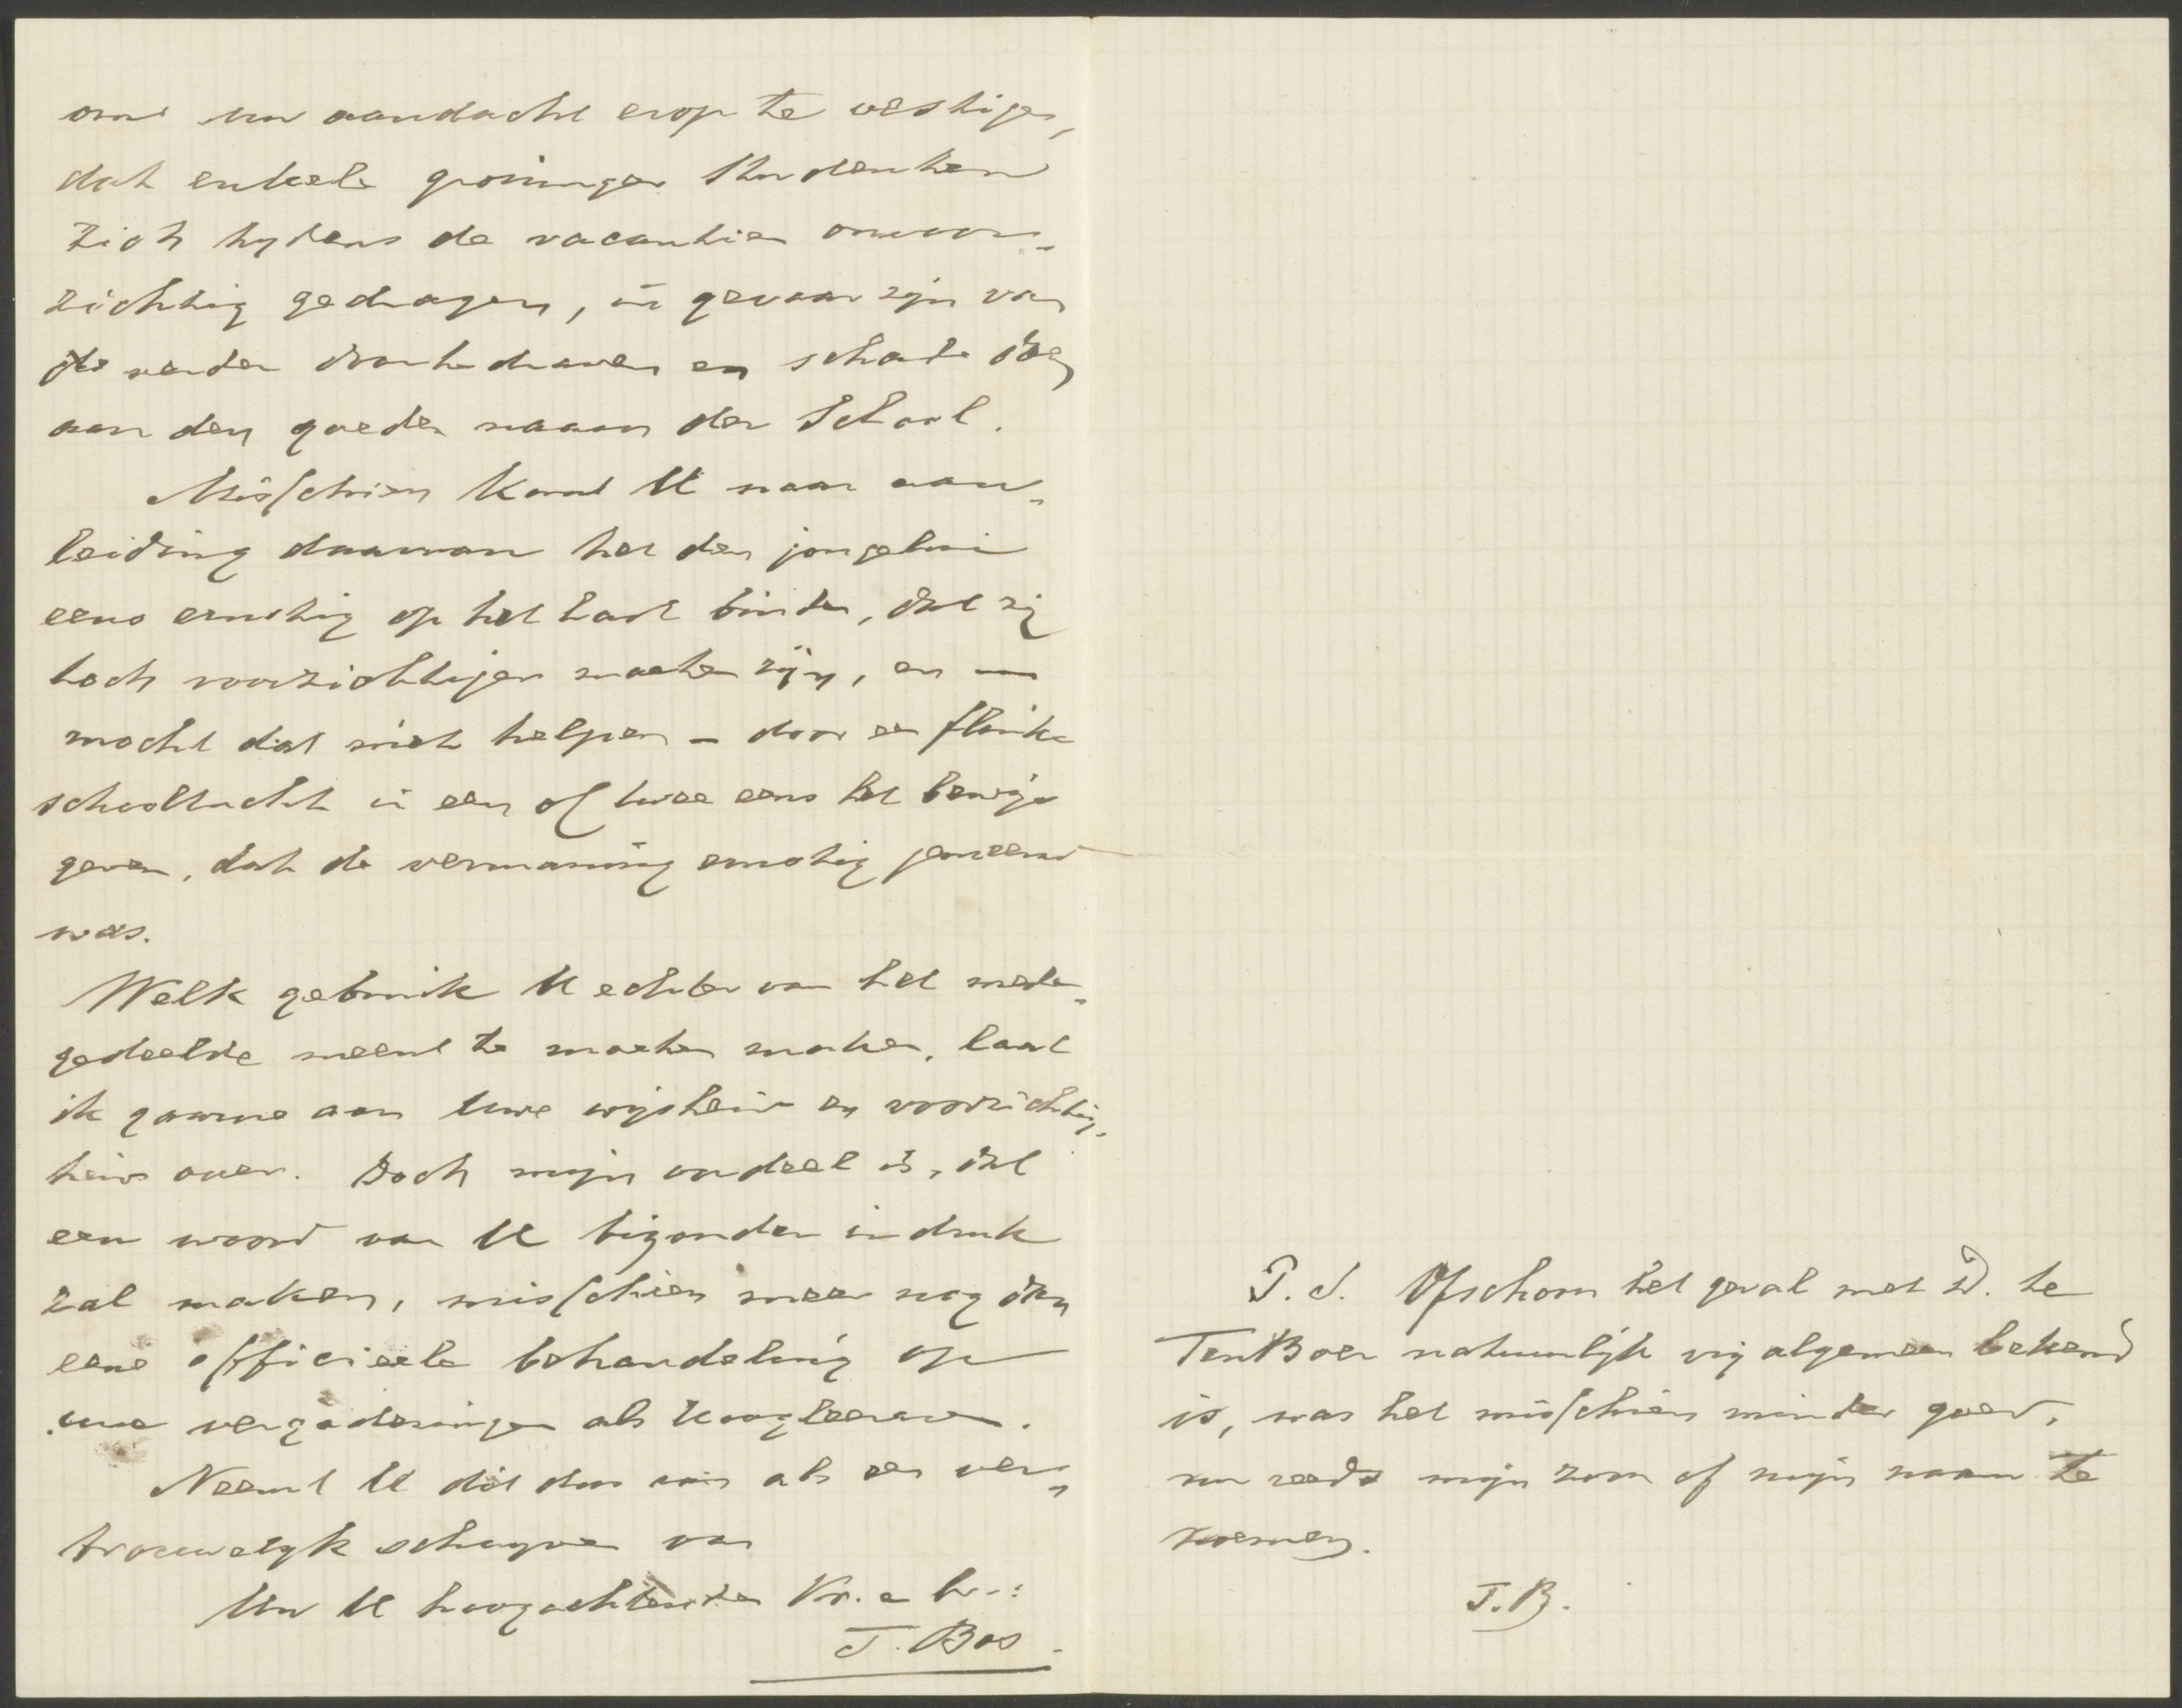 om uw aandacht erop te vestigen,
dat enkele groninger Studenten
zich tydens de vacantien onvoor-
zichtig gedragen, in gevaar zijn van
verder door te draven en schade doen
aan den goeden naam der School.
Misschien kunt U naar aan-
leiding daarvan het den jongelui
eens ernstig op het hart binden, dat zij
toch voorzichtiger moeten zijn, en —
mocht dat niet helpen – door een flinke
schooltucht in een of twee eens het bewijs
geven, dat de vermaning ernstig gemeend
was.
Welk gebruik U echter van het mede-
gedeelde meent te moeten maken, laat
ik gaarne aan Uwe wijsheid en voorzichtig-
heid over. Doch mijn oordeel is, dat
een woord van U bizonder indruk
zal maken, misschien meer nog dan
eene officieele behandeling op
uwe vergaderingen als Hoogleeraren.
Neemt U dit dus aan als een ver-
trouwelyk schryven van
Uw U hoogachtenden Vr. en br.:
T. Bos.
P.S. Ofschoon het geval met D. te
Ten Boer natuurlijk vrij algemeen bekend
is, was het misschien minder goed,
om reeds mijn zoon of mijn naam te
noemen.
T.B.